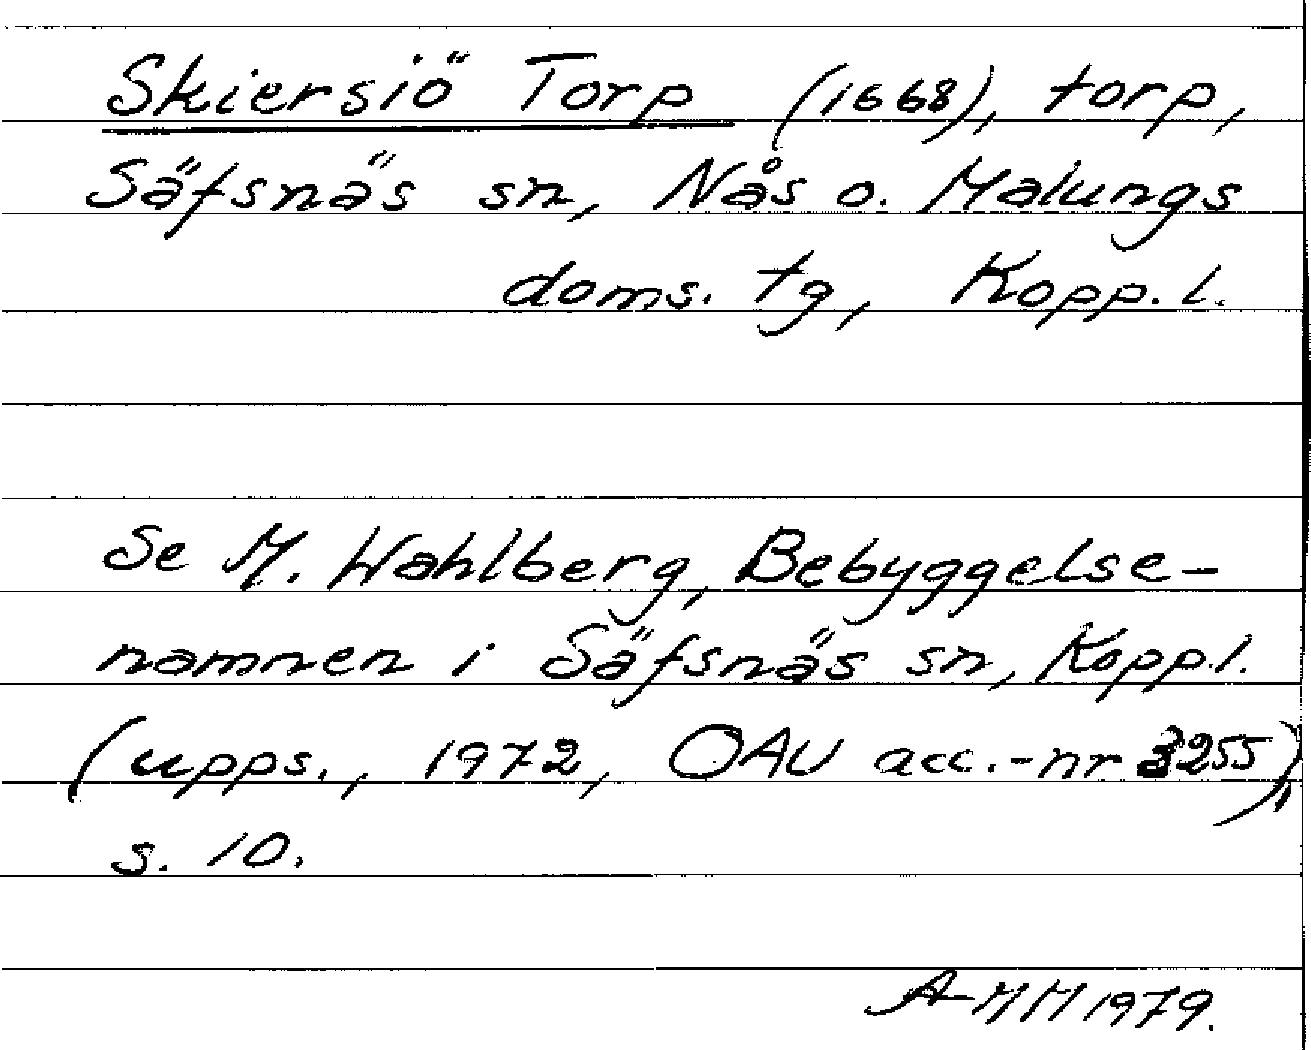 Skiersiö Torp (1668), torp,
Säfsnäs sn, Nås o. Malungs
doms. tg, Kopp. l.
Se M. Wahlberg, Bebyggelse-
namnen i Säfsnäs sn, Kopp.l.
(upps., 1972, OAU acc.-nr 3255),
s. 10.
A-MM 1979.